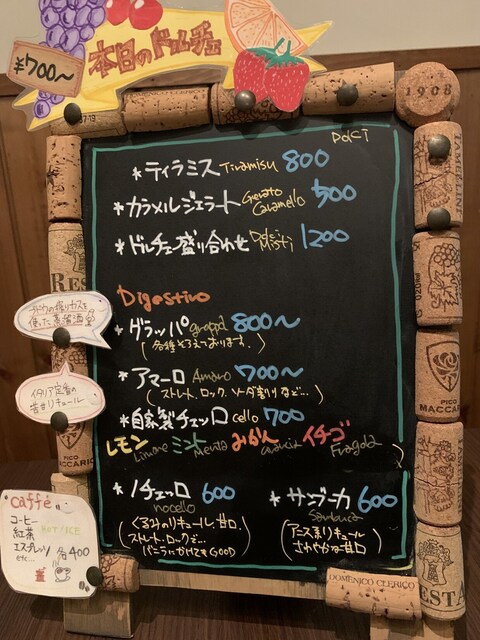 本日のドルチェ
¥700〜
DOLCI
*ティラミス Tiramisu 800
*カラメルジェラート Gerato Caramello 500
*ドルチェ盛り合わせ Dolci Misti 1200
Digestivo
*グラッパ grappa 800〜
(各種そろえております。)
*アマーロ Amaro 700〜
(ストレート、ロック、ソーダ割りなど…)
*自家製チェッロ cello 700
レモン Limone ミント Menta みかん イチゴ Fragola
*ノチェッロ 600
nocello
(くるみのリキュール、甘口。
ストレート、ロックで…
バニラにかけてもGOOD)
*サンブーカ 600
Sambuca
(アニス系リキュール
さわやかな甘口)
ブドウの搾りカスを
使った蒸留酒
イタリア定番の
苦甘リキュール
Caffé
コーヒー
紅茶 HOT/ICE
エスプレッソ 各400
etc...
1908
PICO
MACCARIO
PICO
MACCARIO
DOMENICO CLERICO